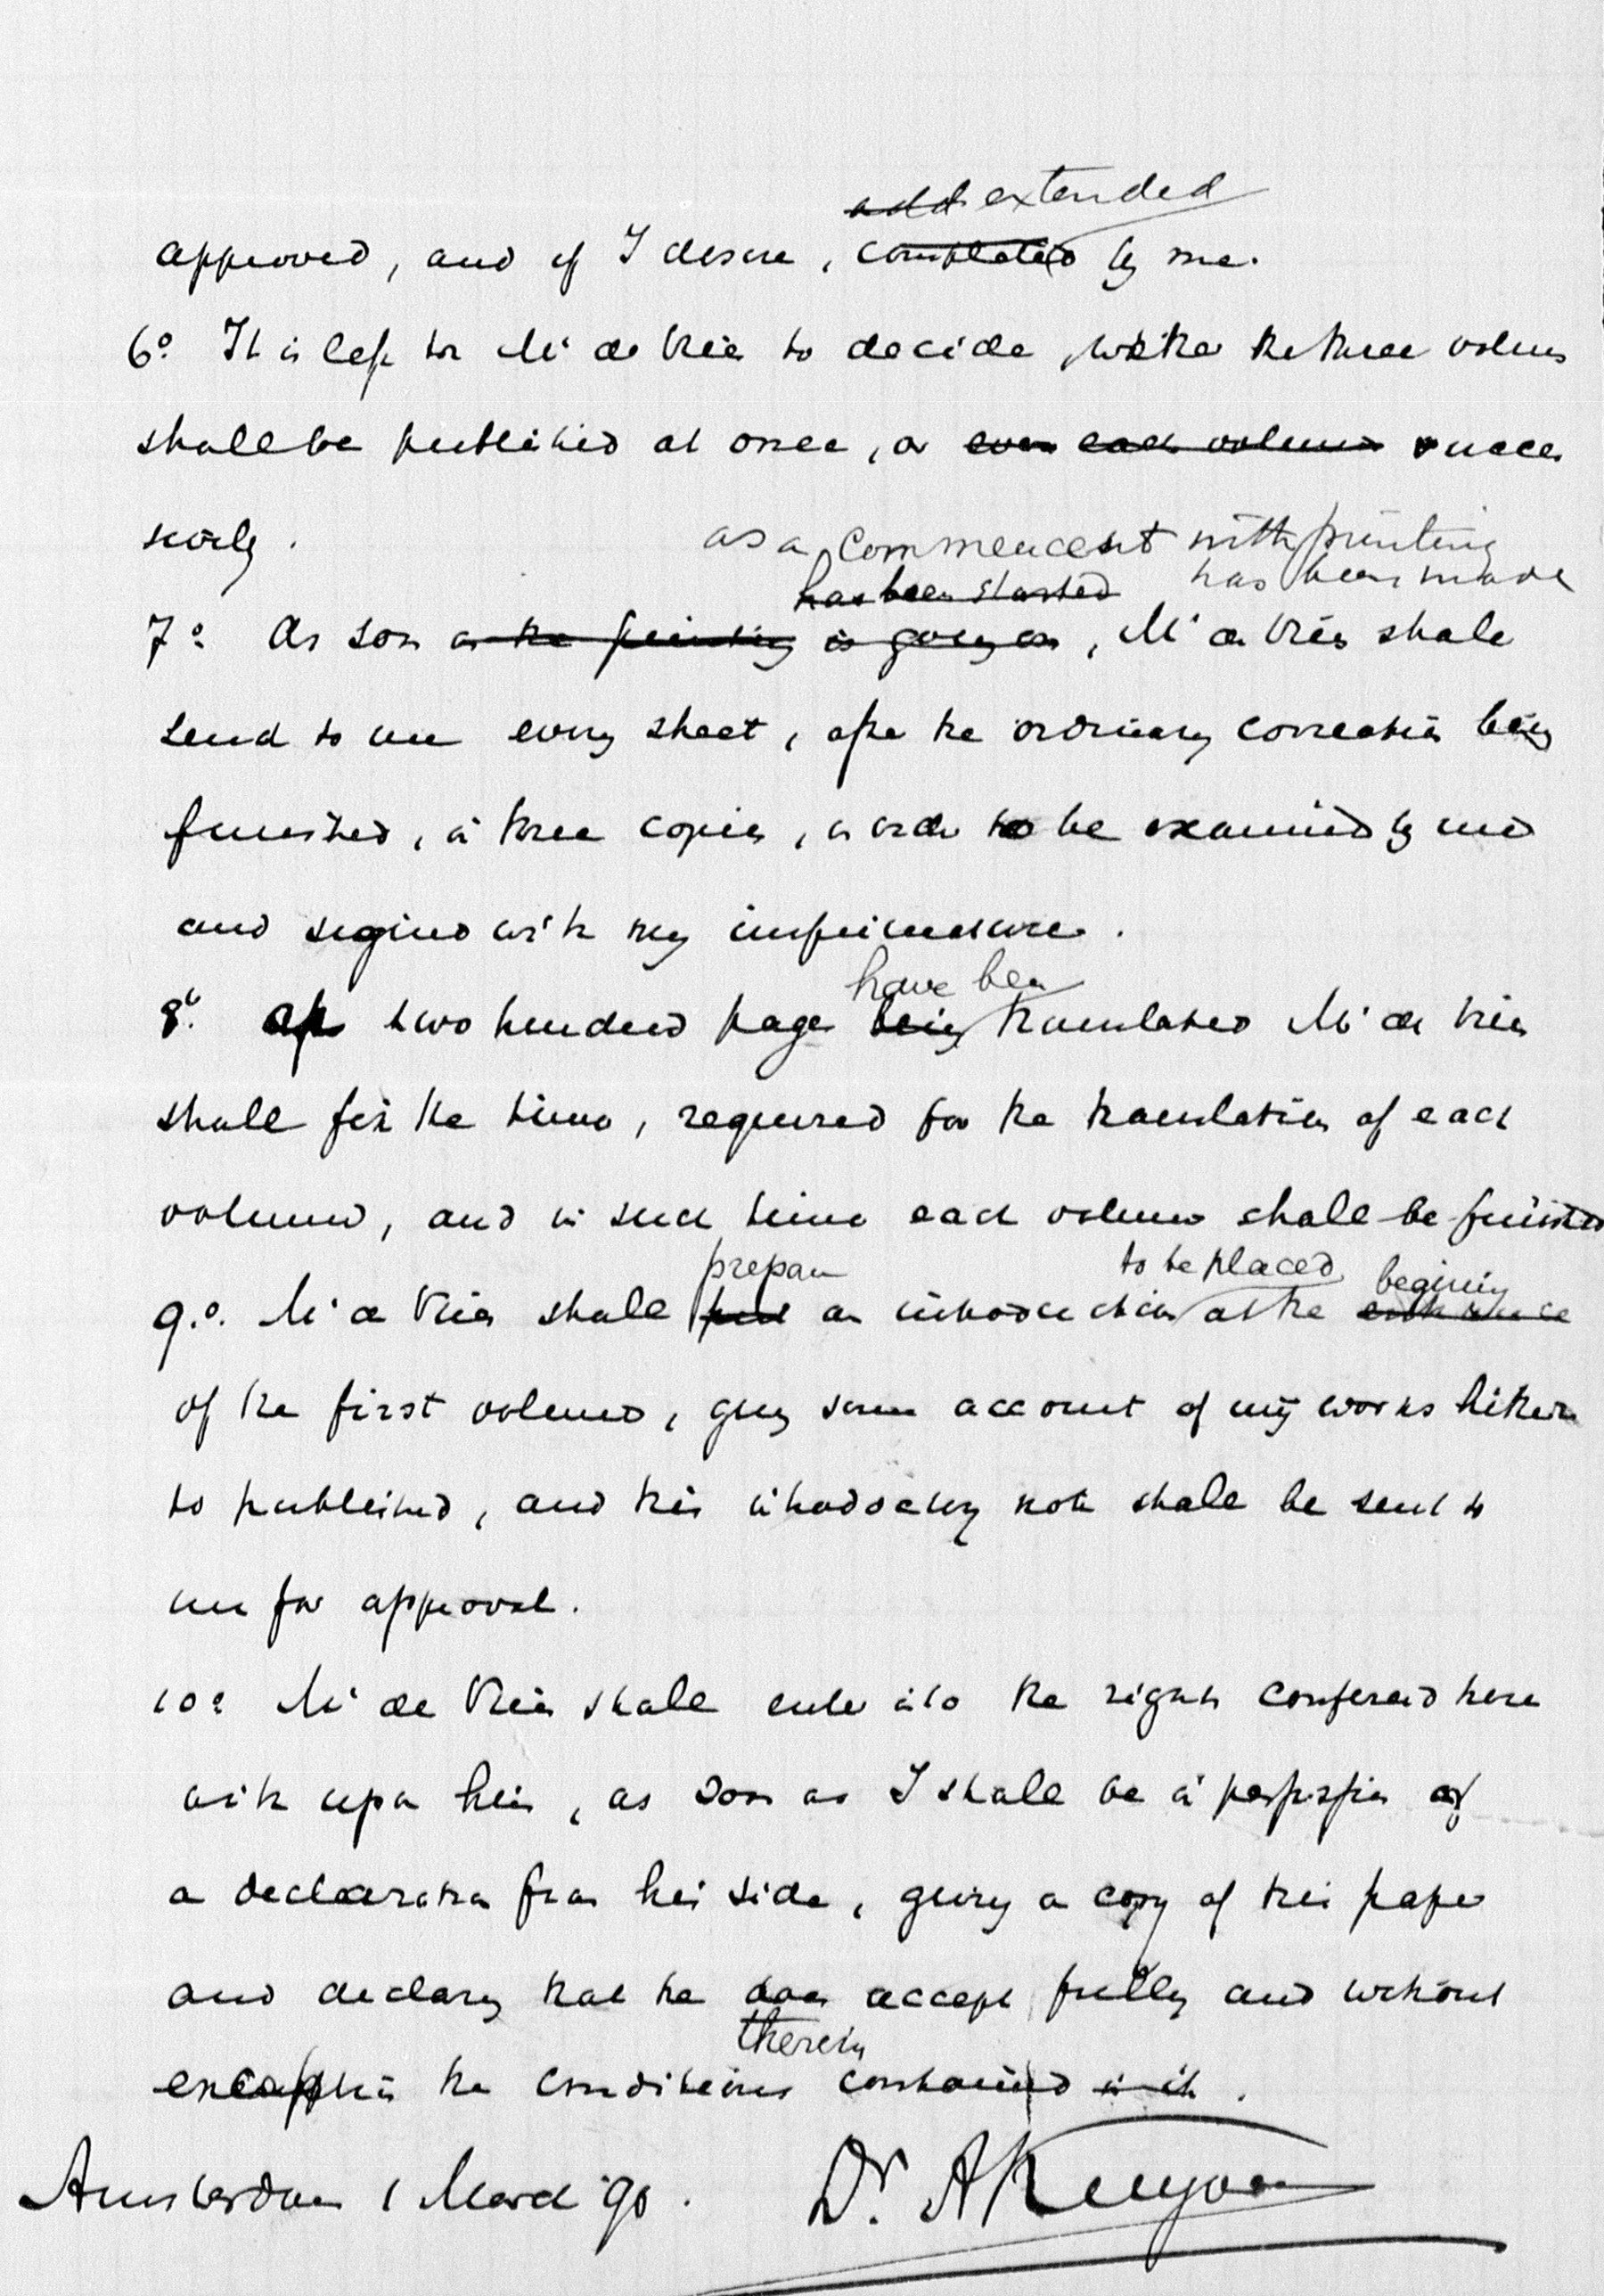 ~~add~~ extended
approved, and if I desire, ~~completed~~ by me.
6º. It is left to Mr de Vries to decide, whether the three volumes
shall be published at once, or ~~even each volume~~ succes
sively.
as a commencement with printing
~~has been started~~ has been made
7º. As soon ~~as the printing~~ ~~is going on~~, Mr de Vries shall
send to me every sheet, after the ordinary correction being
finished, in three copies, in order to be examined by me
and signed with my imprimatur.
have been
8º. After two hundred pages ~~being~~ translated Mr de Vries
shall fix the time, required for the translation of each
volume, and in such time each volume shall be finished
prepare to be placed beginning
9.º. Mr de Vries shall an introduction at the ~~entrance~~
of the first volume, giving some account of my works hither
to published, and this introductory note shall be sent to
me for approval.
10º. Mr de Vries shall enter into the rights conferred here
with upon him, as soon as I shall be in possession of
a declaration from his side, giving a copy of this paper
and declaring that he does accept fully and without
therein
exception the conditions contained ~~in it~~.
Amsterdam 1 March '90. Dr. A Kuyper